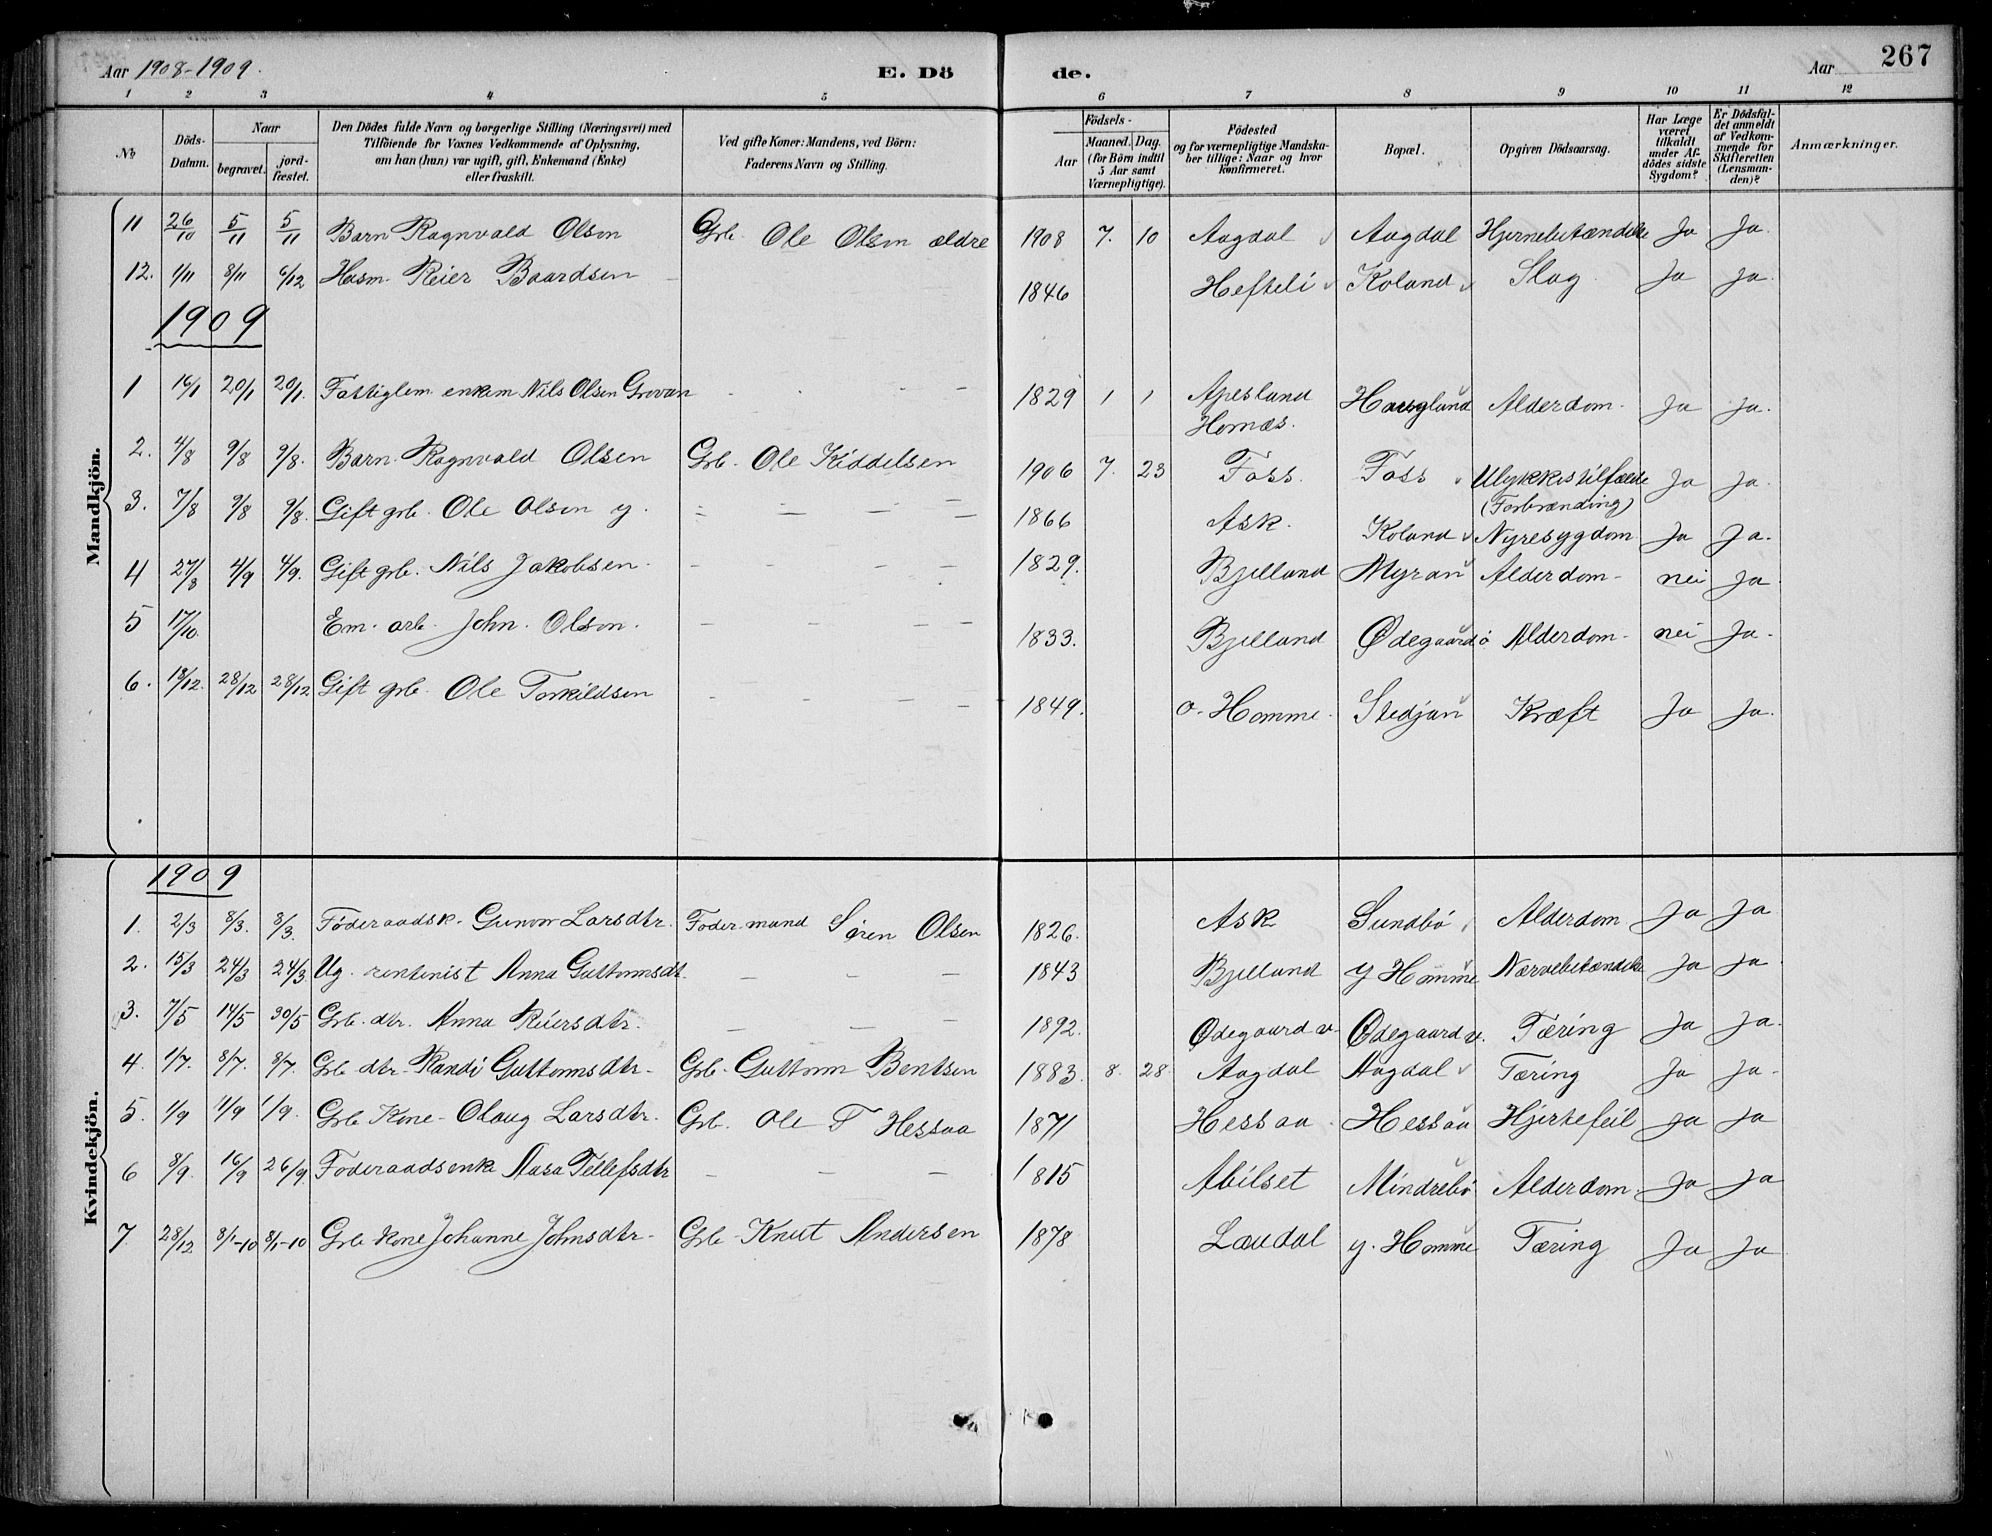 Aar 1908-1909. E. Dö de. Aar 267
1 2 3 4 5 6 7 8 9 10 11 12
No. Döds-Datum. Naar begravet. jord-fæstet. Den Dödes fulde Navn og borgerlige Stilling (Næringsvei) med Tilföiende for Voxnes Vedkommende af Oplysning, om han (hun) var ugift, gift, Enkemand (Enke) eller fraskilt. Ved gifte Koner: Mandens, ved Börn: Faderens Navn og Stilling. Födsels- Aar Maaned. Dag. (for Börn indtil 5 Aar samt Værnepligtige). Födested og for værnepligtige Mandskaber tillige: Naar og hvor konfirmeret. Bopæl. Opgiven Dödsaarsag. Har Læge været tilkaldt under Afdödes sidste Sygdom? Er Dödsfaldet anmeldt af Vedkommende for Skifteretten (Lensmanden)? Anmærkninger.
Mandkjön.
11 26/10 5/11 5/11 Barn Ragnvald Olsen Grb. Ole Olsen ældre 1908 7. 10 Aagdal Aagdal Hjernebetændelse Ja Ja.
12. 1/11 8/11 6/12 Husm. Reier Baardsen 1846 Hefteli Koland Slag. Ja Ja.
1909
1 16/1 20/1 20/1. Fattiglem enkem Nils Olsen Grovan 1829 Apesland Homæs. Haugland Alderdom. Ja Ja.
2. 4/8 9/8 9/8. Barn Ragnvald Olsen Grb. Ole Kiddelsen 1906 7. 23 Foss. Foss Ulykkestilfælde (Forbrænding) Ja Ja.
3. 7/8 9/8 9/8. Gift grb. Ole Olsen y. 1866 Ask. Koland Nyresygdom Ja Ja.
4 27/8 4/9 4/9. Gift grb. Nils Jakobsen. 1829. Bjelland Myran Alderdom nei Ja
5 17/10. Em. arb. John Olsen. 1833. Bjelland Ødegaard ö Alderdom nei Ja.
6. 18/12. 28/12 28/12 Gift grb. Ole Torkildsen 1849. o. Homme. Stedjan Kræft Ja Ja.
Kvindekjön.
1909
1. 2/3 8/3. 8/3. Föderaadsk. Gunvor Larsdtr. Foder. mand Søren Olsen 1826. Ask Sundbö Alderdom Ja Ja
2. 15/3 24/3 24/3 Ug. rentenist Anna Guttormsdt. 1843 Bjelland y Homme Nærvebetændelse Ja Ja
3. 7/5 14/5 30/5 Grb. dtr. Anna Reiersdtr. 1892. Ødegaard v. Ødegaard v. Tæring Ja Ja.
4. 1/7. 8/7. 8/7. Grb dtr. Randi Guttormsdtr. Grb. Guttorm Bentsen 1883. 8. 28. Aagdal Aagdal Tæring Ja Ja.
5. 1/9 11/9 11/9. Grb Kone Olaug Larsdtr. Grb. Ole T Hessaa 1871 Hessaa Hessaa Hjertefeil Ja Ja
6 8/9. 16/9 26/9 Föderaadsenk Aasa Tellefsdtr 1815 Abilset Mindrebö Alderdom. Ja Ja
7 28/12 8/1-10 8/1-10 Grb Kone Johanne Johnsdtr. Grb. Knut Andersen 1878 Laudal y. Homme Tæring Ja Ja